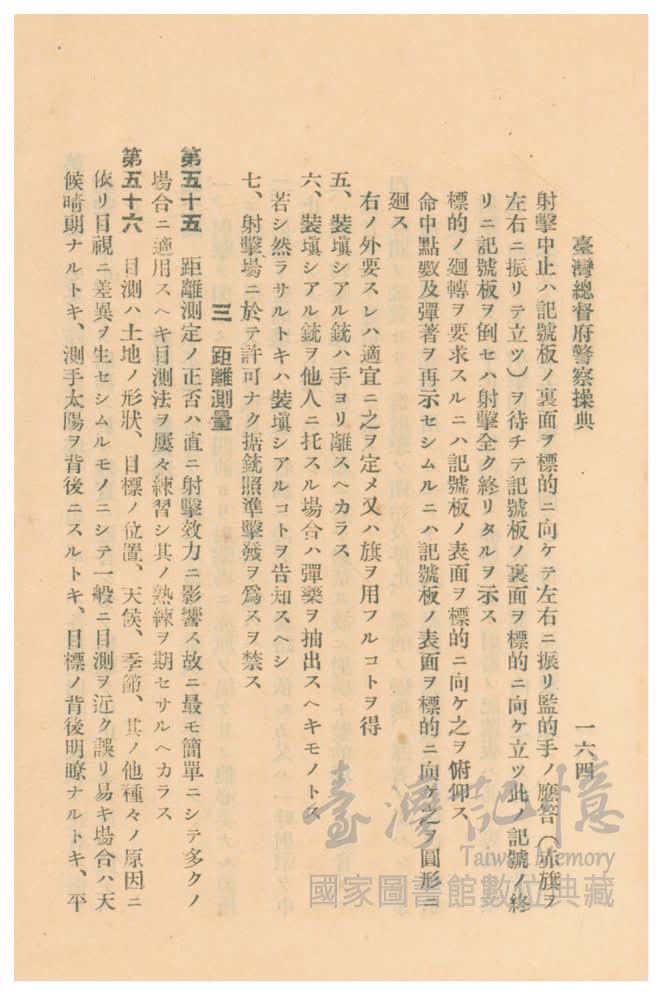 臺灣總督府警察操典
一六四
射擊中止ハ記號板ノ裏面ヲ標的ニ向ケテ左右ニ振リ監的手ノ應答(赤旗ヲ
左右ニ振リテ立ツ)ヲ待チテ記號板ノ裏面ヲ標的ニ向ケ立ツ此ノ記號ノ終
リニ記號板ヲ倒セハ射擊全ク終リタルヲ示ス
標的ノ廻轉ヲ要求スルニハ記號板ノ表面ヲ標的ニ向ケ之ヲ俯仰ス
命中點數及彈著ヲ再示セシムルニハ記號板ノ表面ヲ標的ニ向ケ之ヲ圓形ニ
廻ス
右ノ外要スレハ適宜ニ之ヲ定メ又ハ旗ヲ用フルコトヲ得
五、裝塡シアル銃ハ手ヨリ離スヘカラス
六、裝塡シアル銃ヲ他人ニ托スル場合ハ彈藥ヲ抽出スヘキモノトス
若シ然ラサルトキハ裝塡シアルコトヲ告知スヘシ
七、射擊場ニ於テ許可ナク据銃照準擊發ヲ爲スヲ禁ス
三 距離測量
第五十五 距離測定ノ正否ハ直ニ射擊效力ニ影響ス故ニ最モ簡單ニシテ多クノ
場合ニ適用スヘキ目測法ヲ屢々練習シ其ノ熟練ヲ期セサルヘカラス
第五十六 目測ハ土地ノ形狀、目標ノ位置、天候、季節、其ノ他種々ノ原因ニ
依リ目視ニ差異ヲ生セシムルモノニシテ一般ニ目測ヲ近ク誤リ易キ場合ハ天
候晴朗ナルトキ、測手太陽ヲ背後ニスルトキ、目標ノ背後明瞭ナルトキ、平
臺灣記憶
Taiwan Memory
國家圖書館數位典藏